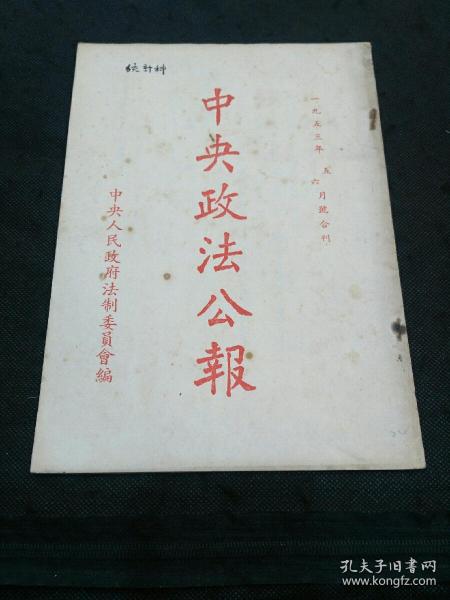 统計科
一九五三年 五六月號合刊
中央政法公報
中央人民政府法制委員會編
孔夫子旧书网
www.kongfz.com